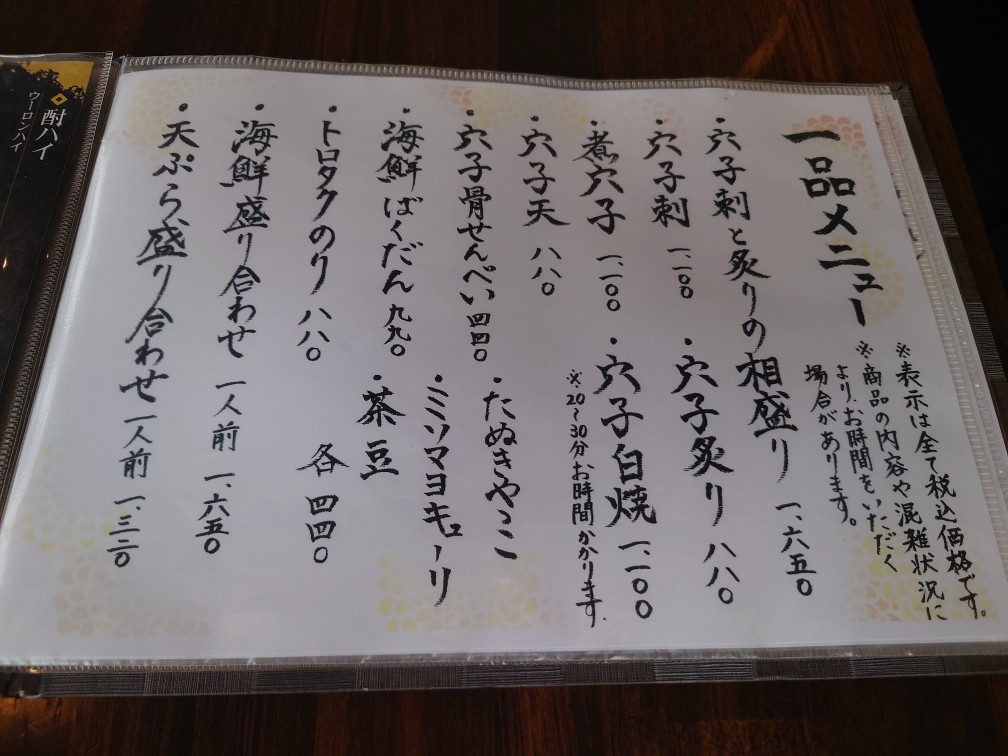 一品メニュー
※表示は全て税込価格です。
※商品の内容や混雑状況に
より、お時間をいただく
場合があります。
・穴子刺と炙りの相盛り 一、六五〇
・穴子刺 一、一〇〇
・穴子炙り 八八〇
・煮穴子 一、一〇〇
・穴子白焼 一、一〇〇
※20～30分お時間かかります.
・穴子天 八八〇
・穴子骨せんべい 四四〇
・たぬきやっこ
・ミソマヨキューリ
・茶豆
各四四〇
・海鮮ばくだん 九九〇
・トロタクのり 八八〇
・海鮮盛り合わせ 一人前 一、六五〇
・天ぷら盛り合わせ 一人前 一、三二〇
酎ハイ
ウーロンハイ